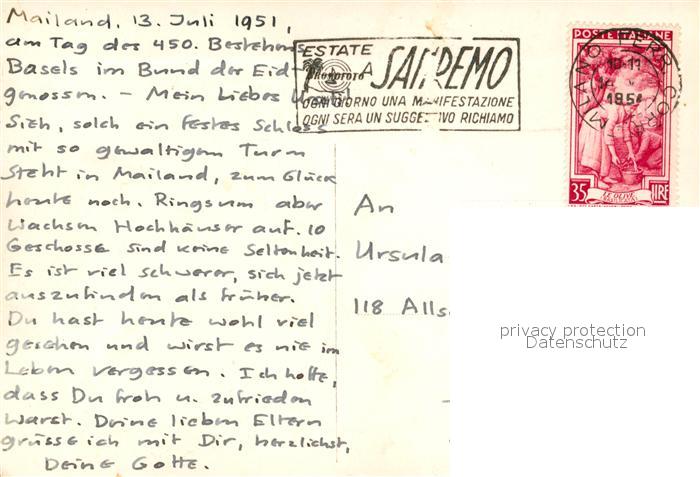 Mailand, 13. Juli 1951,
am Tag des 450. Bestehens
Basels im Bund der Eidt-
genossen. – Mein liebes
Sieh, solch ein festes Schloss
mit so gewaltigem Turm
steht in Mailand, zum Glück
heute noch. Ringsum aber
wachsen Hochhäuser auf. 10
Geschosse sind keine Seltenheit.
Es ist viel schwerer, sich jetzt
auszufinden als früher.
Du hast heute wohl viel
gesehen und wirst es nie im
Leben vergessen. Ich hoffe,
dass Du froh u. zufrieden
warst. Deine lieben Eltern
grüsse ich mit Dir, herzlichst,
Deine Gotte.
ESTATE
A SANREMO
OGNI GIORNO UNA MANIFESTAZIONE
OGNI SERA UN SUGGESTIVO RICHIAMO
POSTE ITALIANE
MILANO FERR. CORR.
35 LIRE
An
Ursula
118 Alls
privacy protection
Datenschutz